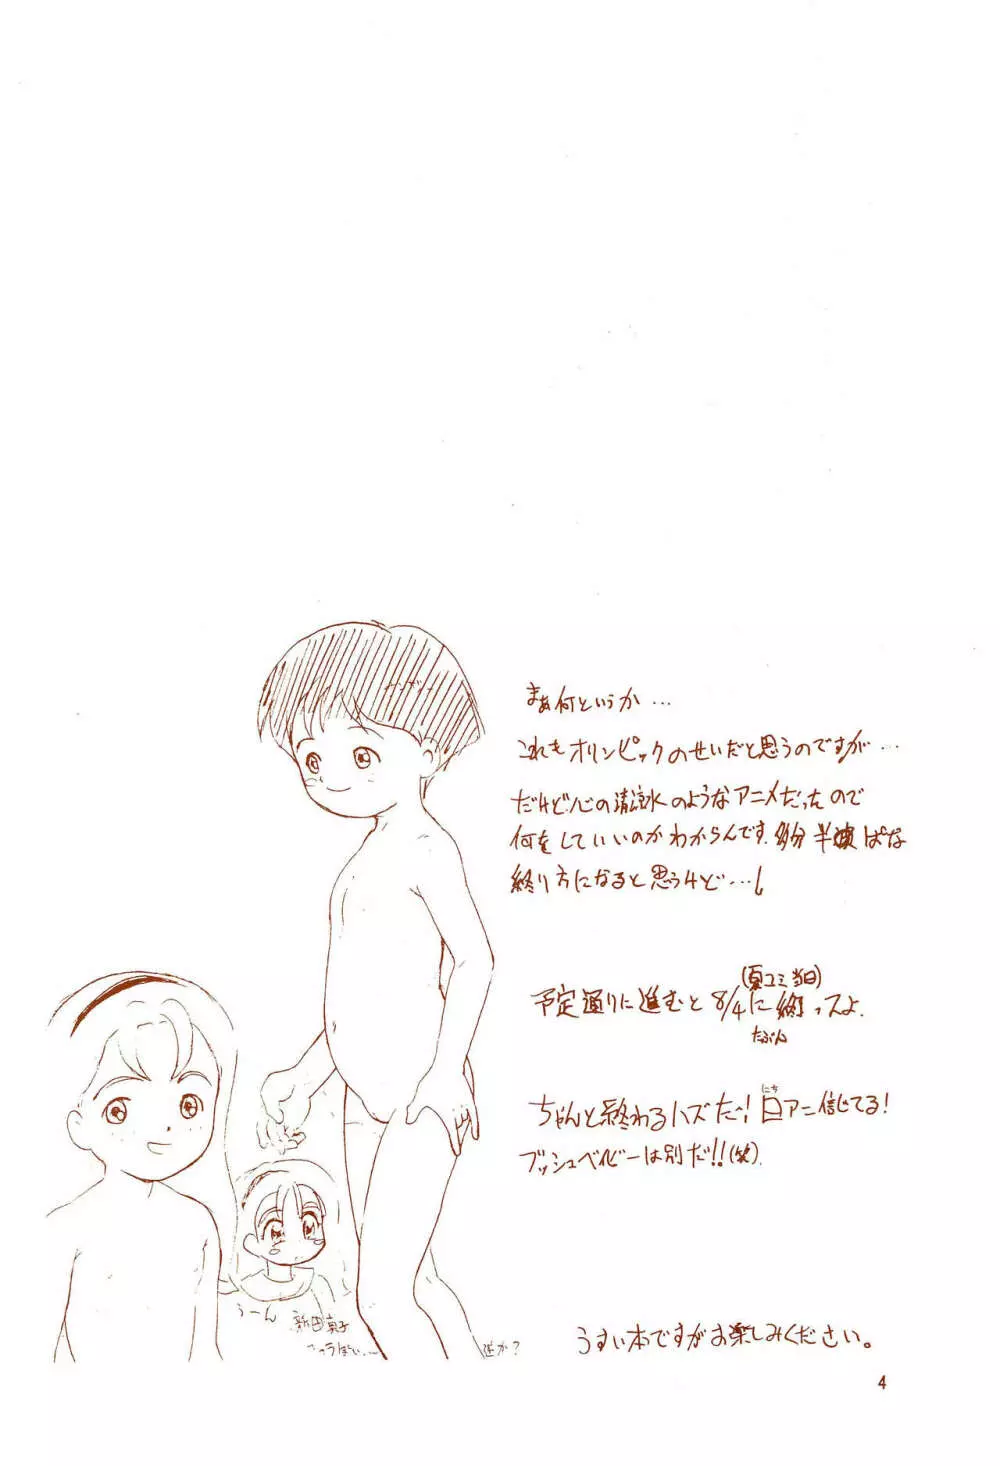 まあ何というか…
これもオリンピックのせいだと思うのですが…
だけど心の清涼水のようなアニメだったので
何をしていいのかわからんです。多分 半端ぱな
終り方になると思うけど…。
(夏コミ当日)
予定通りに進むと 8/4に 終ってよ。
たぶん
にち
ちゃんと終わるハズだ! 日アニ信じてる!
ブッシュベイビーは別だ!!(笑)
うーん
新田真子
っぽい…
逆か?
うすい本ですがお楽しみください。
4